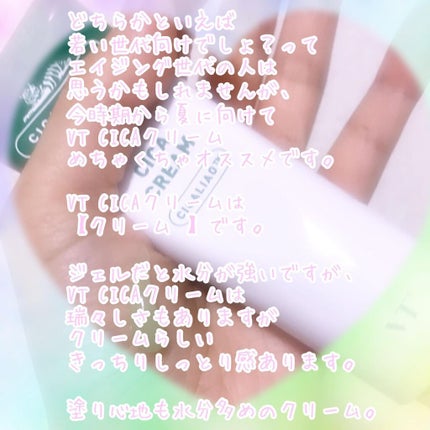 どちらかといえば
若い世代向けでしょ？って
エイジング世代の人は
思うかもしれませんが、
今時期から夏に向けて
VT CICAクリーム
めちゃくちゃオススメです。
VT CICAクリームは
【クリーム 】です。
ジェルだと水分が強いですが、
VT CICAクリームは
瑞々しさもありますが
クリームらしい
きっちりしっとり感あります。
塗り心地も水分多めのクリーム。
CICA
CREAM
VT